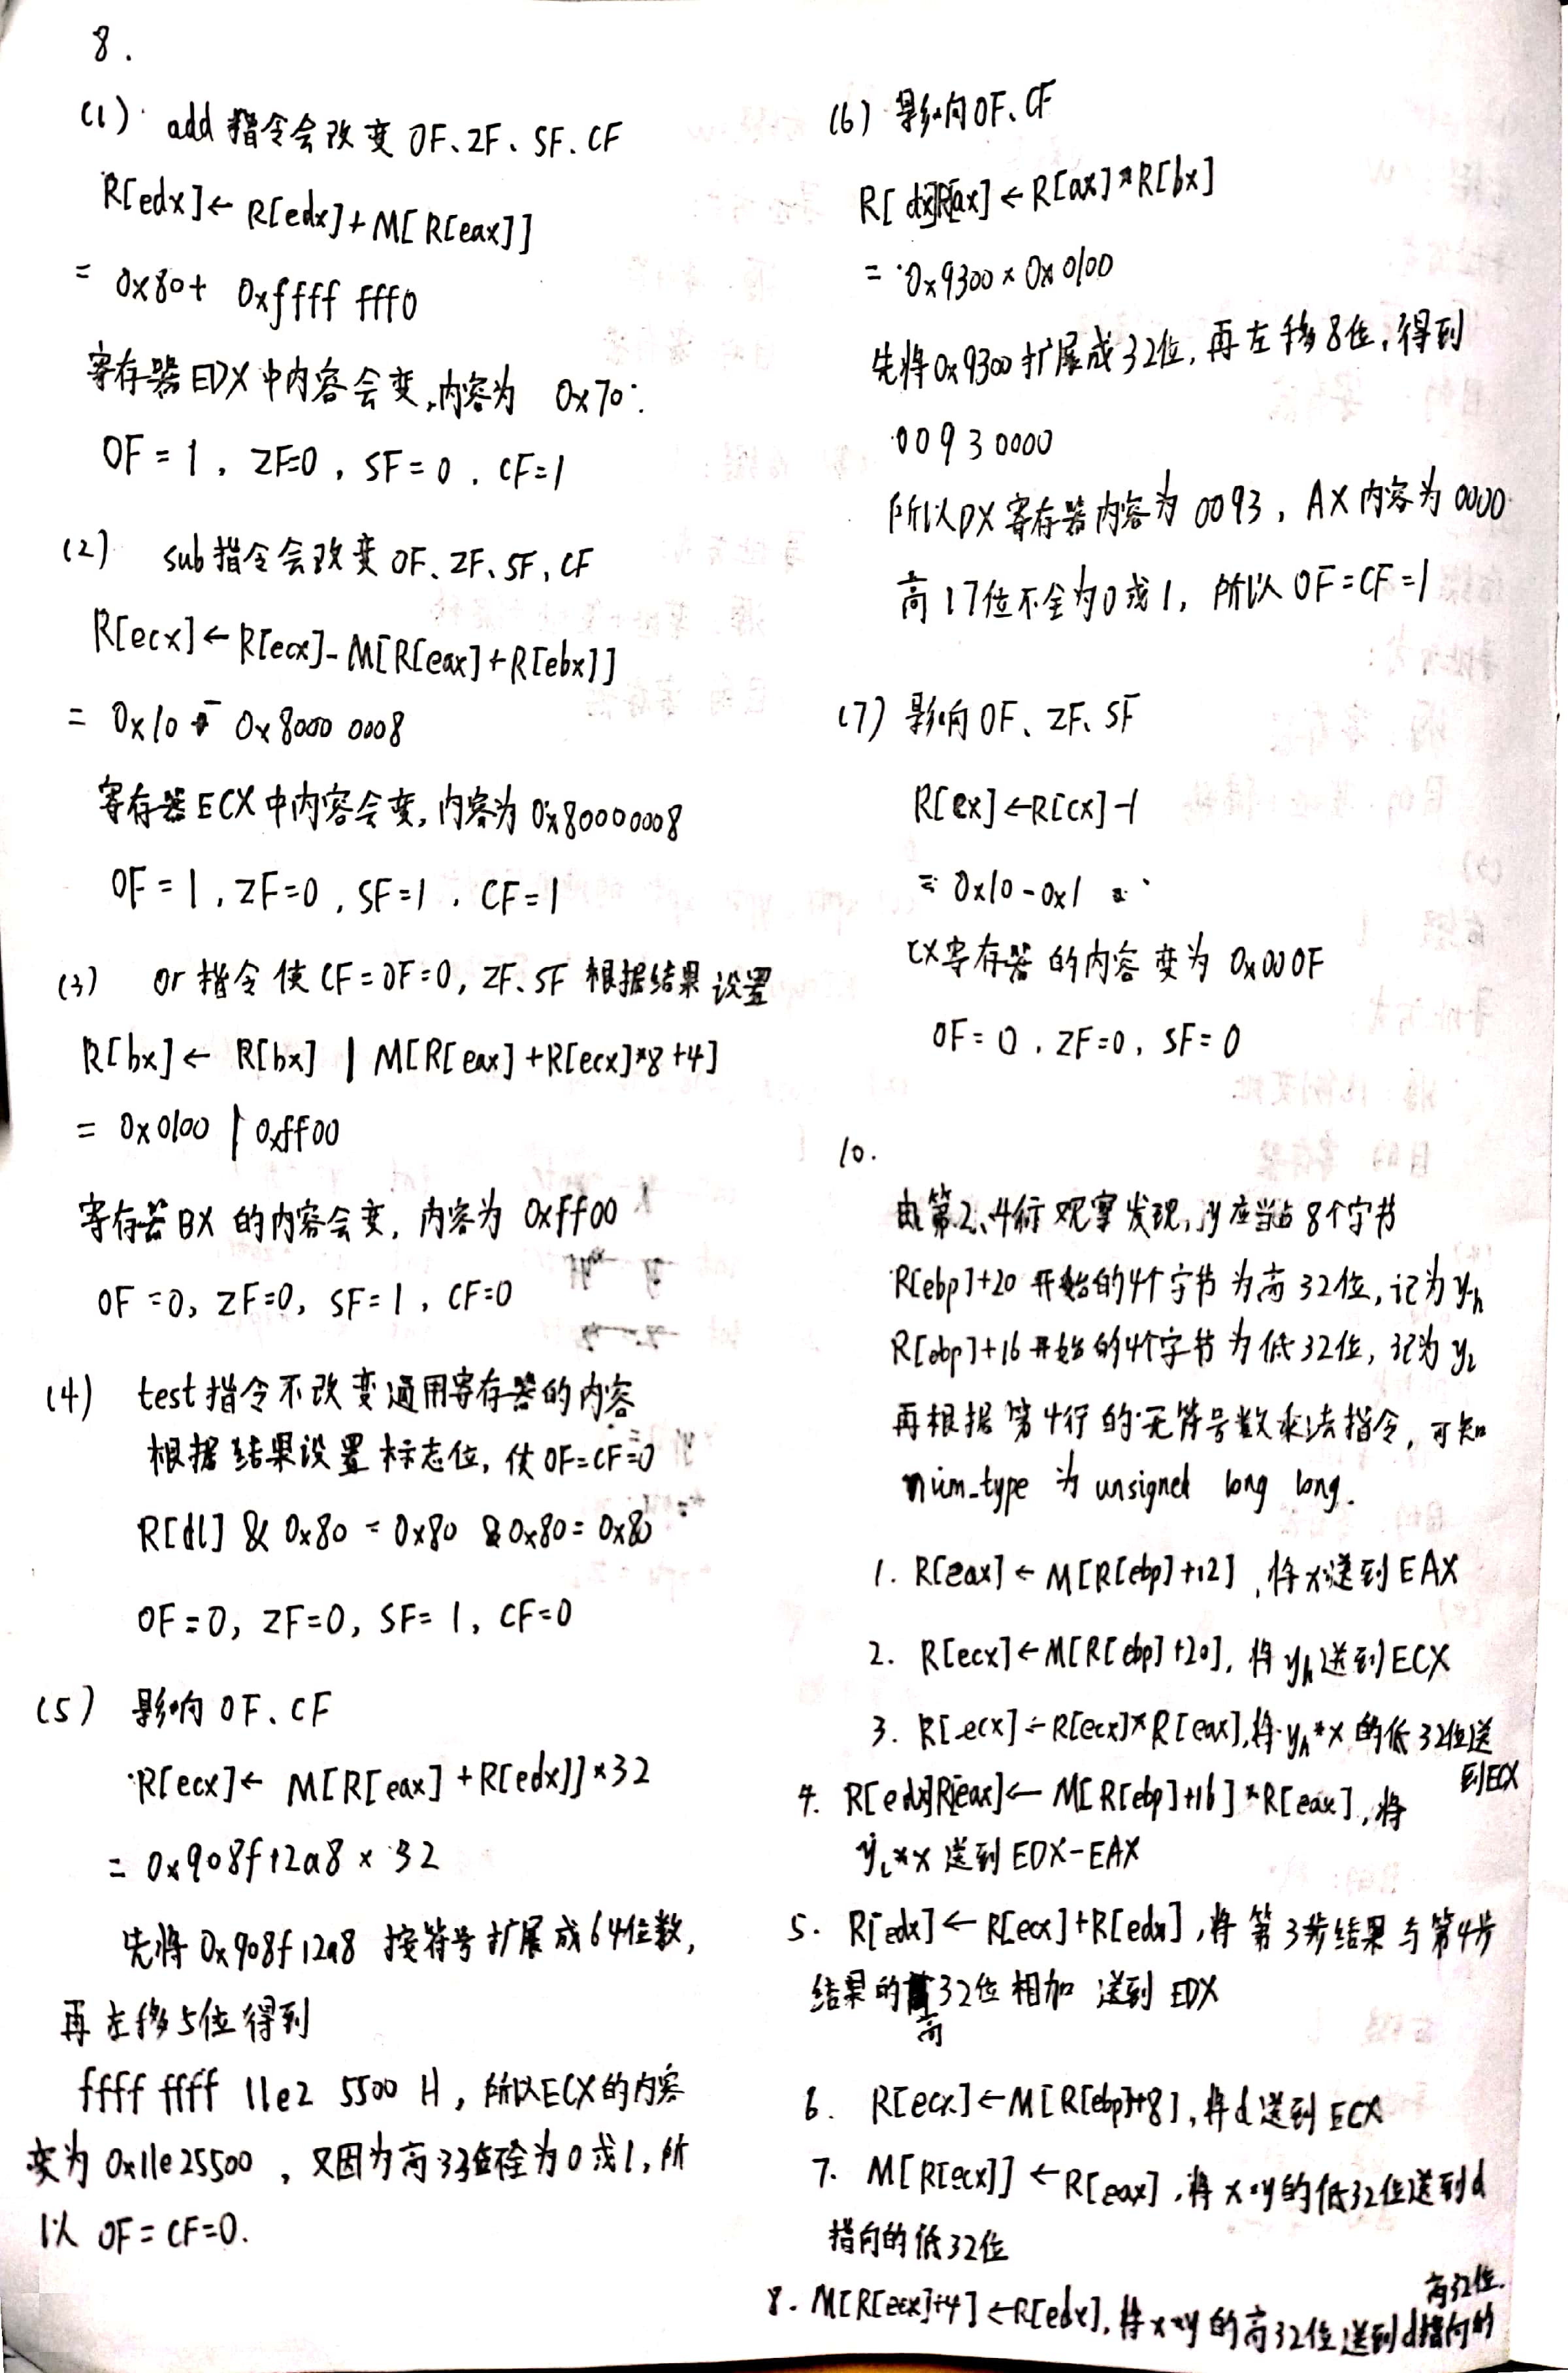 8.
(1) add 指令会改变 OF、ZF、SF、CF
R[edx]← R[edx]+M[R[eax]]
= 0x80+ 0xffff fff0
寄存器EDX中内容会变,内容为 0x70.
OF = 1, ZF=0, SF=0, CF=1
(2) sub指令会改变 OF、ZF、SF、CF
R[ecx]← R[ecx]-M[R[eax]+R[ebx]]
= 0x10 - 0x8000 0008
寄存器ECX中内容会变,内容为0x80000008
OF=1, ZF=0, SF=1, CF=1
(3) or 指令使 CF=OF=0, ZF、SF 根据结果设置
R[bx]← R[bx] | M[R[eax]+R[ecx]*8+4]
= 0x0100 | 0xff00
寄存器BX的内容会变,内容为 0xff00
OF=0, ZF=0, SF=1, CF=0
(4) test指令不改变通用寄存器的内容
根据结果设置标志位,使OF=CF=0
R[dl] & 0x80 = 0x80 & 0x80 = 0x80
OF=0, ZF=0, SF=1, CF=0
(5) 影响 OF、CF
R[ecx]← M[R[eax]+R[edx]]*32
= 0x908f12a8 × 32
先将 0x908f12a8 按符号扩展成64位数,
再左移5位得到
ffff ffff 11e2 5500 H, 所以ECX的内容
变为 0x11e25500 , 又因为高33位全为0或1,所
以 OF=CF=0.
(6) 影响OF、CF
R[dx]R[ax]← R[ax]*R[bx]
= 0x9300 × 0x0100
先将0x9300扩展成32位,再左移8位,得到
0093 0000
所以DX寄存器内容为0093, AX内容为0000
高17位不全为0或1, 所以 OF=CF=1
(7) 影响OF、ZF、SF
R[cx]←R[cx]-1
= 0x10-0x1
CX寄存器的内容变为 0x000F
OF=0, ZF=0, SF=0
10.
由第2、4行观察发现,y应当占8个字节
R[ebp]+20开始的4个字节为高32位,记为yh
R[ebp]+16开始的4个字节为低32位,记为yl
再根据第4行的无符号数乘法指令,可知
num_type 为 unsigned long long.
1. R[eax]← M[R[ebp]+12],将x送到EAX
2. R[ecx]←M[R[ebp]+20],将yh送到ECX
3. R[ecx]←R[ecx]*R[eax],将yh*x的低32位送
到ECX
4. R[edx]R[eax]← M[R[ebp]+16]*R[eax],将
yl*x 送到EDX-EAX
5. R[edx]← R[ecx]+R[edx],将第3步结果与第4步
结果的高32位相加 送到 EDX
6. R[ecx]←M[R[ebp]+8],将d送到ECX
7. M[R[ecx]]←R[eax],将x*y的低32位送到d
指向的低32位
8. M[R[ecx]+4]←R[edx],将x*y的高32位送到d指向的
高32位.